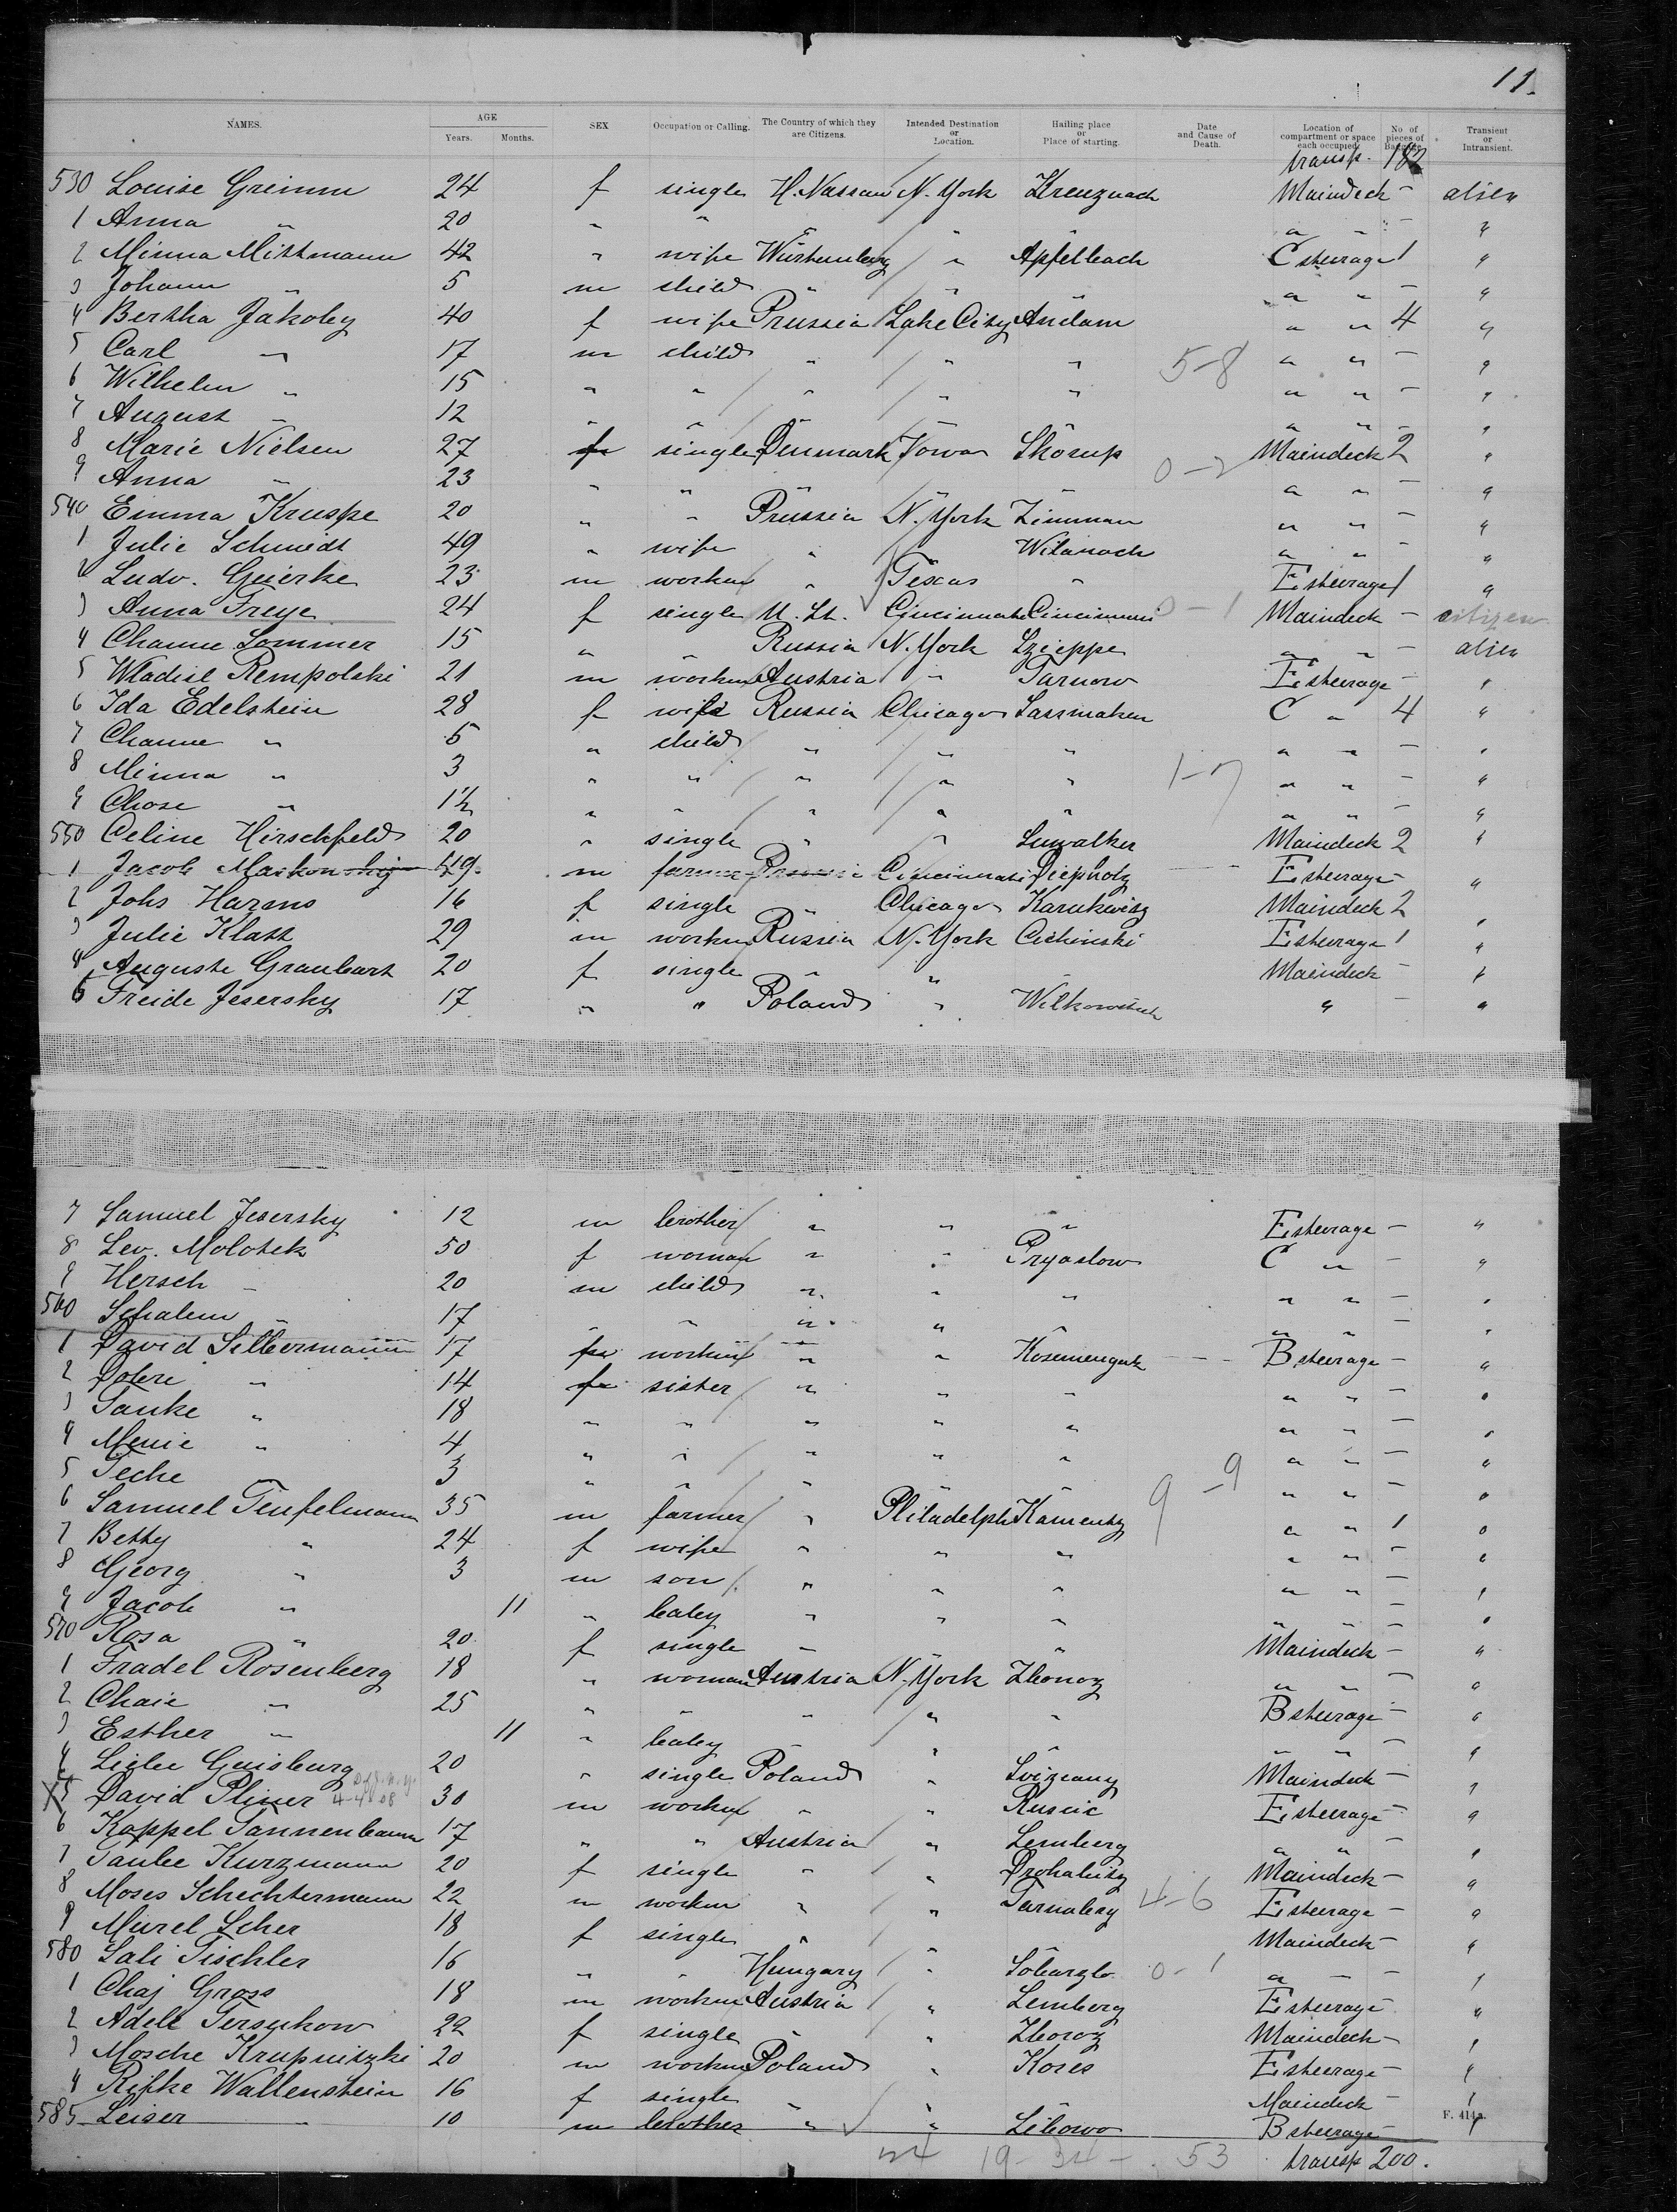 11.
NAMES. AGE Years. Months. SEX Occupation or Calling. The Country of which they are Citizens. Intended Destination or Location. Hailing place or Place of starting. Date and Cause of Death. Location of compartment or space each occupied. No of pieces of Baggage. Transient or Intransient.
transp. 182
530 Louise Grimm 24 f single H. Nassau N. York Kreuznach Maindeck - alien
1 Anna " 20 " " " " " " " - "
2 Minna Mittmann 42 " wife Würtemberg " Apfelbach C steerage 1 "
3 Johann " 5 m child " " " " " - "
4 Bertha Jakoby 40 f wife Prussia Lake City Anclam " " 4 "
5 Carl " 17 m child " " " 5-8 " " - "
6 Wilhelm " 15 " " " " " " " - "
7 August " 12 " " " " " " " - "
8 Marie Nielsen 27 f single Denmark Iowa Skorup Maindeck 2 "
9 Anna " 23 " " " " " 0-2 " " - "
540 Emma Kruspe 20 " " Prussia N. York Zimmau " " - "
1 Julie Schmidt 49 " wife " " Witanoch " " - "
2 Ludv. Guierke 23 m workm " Texas " E steerage 1 "
3 Anna Freye 24 f single U. St. Cincinnati Cincinnati 0-1 Maindeck - citizen
4 Channe Sommer 15 " " Russia N. York Szieppe " " - alien
5 Wladisl Rempolski 21 m workm Austria " Tarnow E steerage - "
6 Ida Edelstein 28 f wife Russia Chicago Sassmaken C " 4 "
7 Channe " 5 " child " " " " " - "
8 Minna " 3 " " " " " 1-7 " " - "
9 Chose " 1½ " " " " " " " - "
550 Celine Hirschfeld 20 " single " " Suwalker Maindeck 2 "
1 Jacob Markonsky 49 m farmer Prussia Cincinnati Diepholz E steerage - "
2 Johs Harms 16 f single " Chicago Karukwitz Maindeck 2 "
3 Julie Klatt 29 m workm Russia N. York Cichinski E steerage 1 "
4 Auguste Graubart 20 f single " " Maindeck - "
6 Freide Jesersky 17 " " Poland " Wilkowisch " - "
7 Samuel Jesersky 12 m brother " " " E steerage - "
8 Lev. Molotek 50 f woman " " Pryaslow C " - "
9 Hersch " 20 m child " " " " " - "
560 Schalem " 17 " " " " " " " - "
1 David Silbermann 17 m workm " " Kosemenguk B steerage - "
2 Dobre " 14 f sister " " " " " - "
3 Tauke " 18 " " " " " " " - "
4 Menie " 4 " " " " " " " - "
5 Teche 3 " " " " " " " - "
6 Samuel Teufelmann 35 m farmer " Philadelph Kamentz 9-9 " " 1 "
7 Betty " 24 f wife " " " " " - "
8 Georg " 3 m son " " " " " - "
9 Jacob " 11 " baby " " " " " - "
570 Rosa " 20 f single " " Maindeck - "
1 Fradel Rosenberg 18 " woman Austria N. York Zboroz " " - "
2 Chaie " 25 " " " " " B steerage - "
3 Esther " 11 " baby " " " - "
4 Liebe Guisburg 20 " single Poland " Svizcany Maindeck - "
5 David Pliner 4-4-08 30 m workm " " Ruscic E steerage - "
6 Koppel Tannenbaum 17 " " Austria " Lemberg " " - "
7 Taube Kurzmann 20 f single " " Drohabitz Maindeck - "
8 Moses Schechtermann 22 m workm " " Tarnoberg 4-6 E steerage - "
9 Murel Scher 18 f single " " Maindeck - "
580 Sali Tischler 16 " " Hungary " 0-1 " - - "
1 Chaj Gross 18 m workm Austria " Lemberg E steerage - "
2 Adele Tersukow 22 f single " " Zboroz Maindeck - "
3 Mosche Krupnitzki 20 m workm Poland " Kores E steerage - "
4 Rifke Wallenstein 16 f single " " " Maindeck - "
585 Leiser " 10 m brother " " Libowo B steerage - "
F. 414a.
24 19-34-53 transp 200.